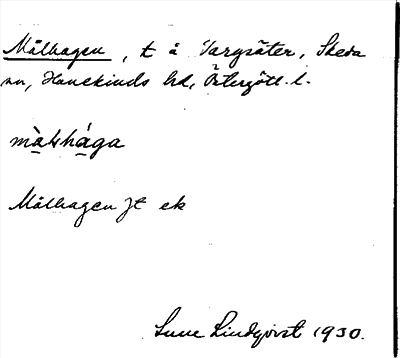 Målhagen, t å Vargsäter, Skeda
sn, Hanekinds hd, Östergötl. l.
màlshága
Målhagen Jt ek
Sune Lindqvist 1930.